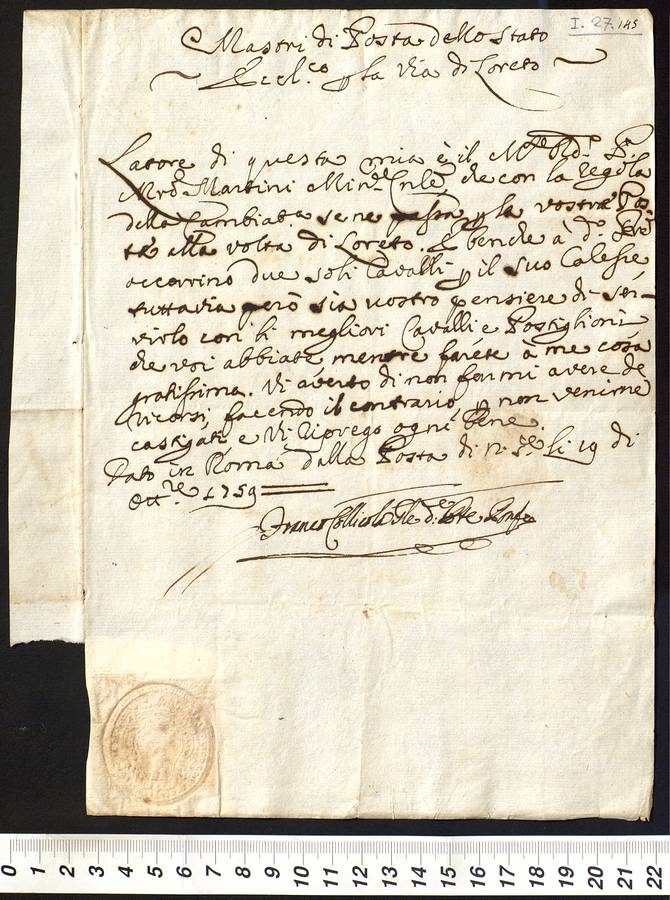 I. 27. 145
Mastri di Posta dello Stato
Eccl.co p la via di Loreto
Latore di questa mia è il M.
Mro Martini Min.e Cnle che con la regola
della Cambiata se ne passa p la vostra Pos-
ta alla volta di Loreto. E benche à d.o
occorrino due soli Cavalli p il suo Calesse
tuttavia però sia vostro pensiere di ser-
virlo con li megliori Cavalli e Postiglioni
che voi abbiate mentre farete à me cosa
gratissima. Vi averto di non farmi avere de
ricorsi, facendo il contrario, p non venirne
castigati, e vi Uprego ogni bene.
Dato in Roma dalla Posta di N. S.re li 19 di
Ott.re 1759
Franco Collicola
0 1 2 3 4 5 6 7 8 9 10 11 12 13 14 15 16 17 18 19 20 21 22